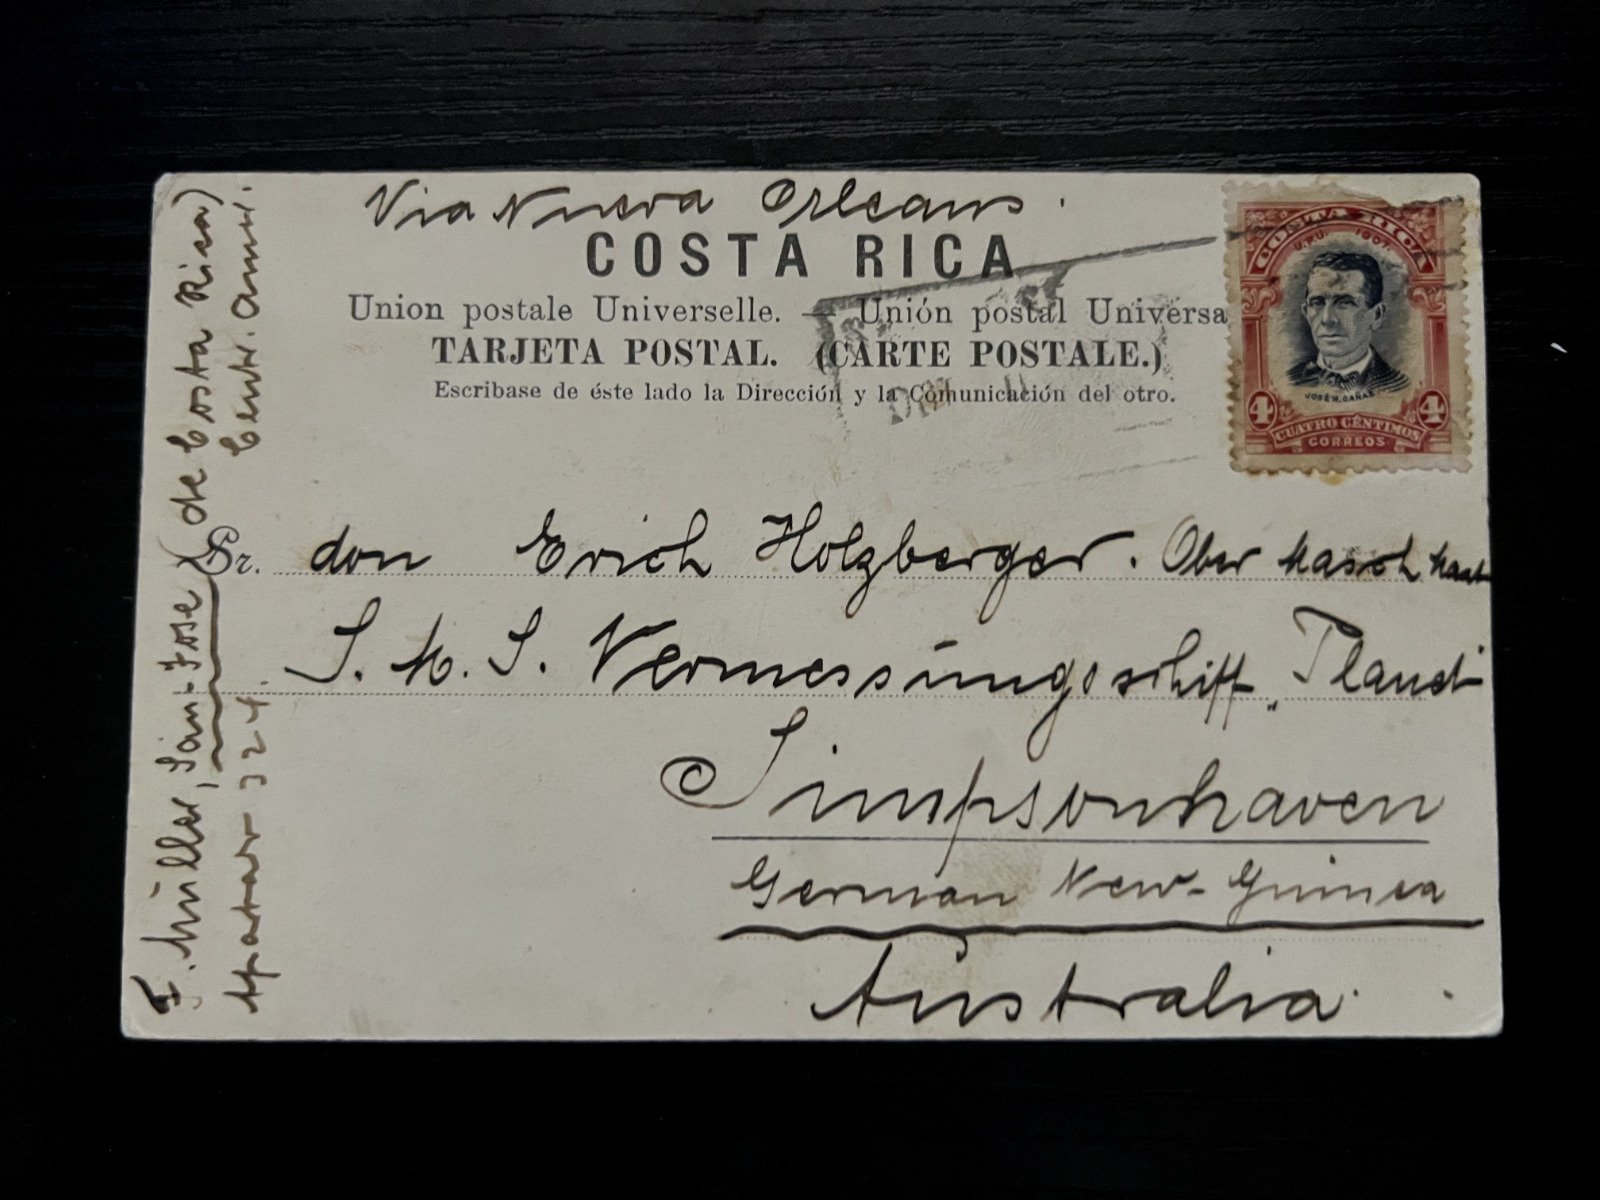 Via Nueva Orleans.
COSTA RICA
Union postale Universelle. — Unión postal Universa
TARJETA POSTAL. (CARTE POSTALE.)
Escribase de éste lado la Dirección y la Comunicación del otro.
COSTA RICA
U.P.U. 1907.
JOSÉ M. CAÑAS
4 4
CUATRO CÉNTIMOS
CORREOS
Sr. don Erich Holzberger. Ober Masch Maat
S. M. S. Vermessungsschiff "Planet
Simpsonhaven
German New-Guinea
Australia.
F. Müller, San José (de Costa Rica)
Apartar 324. Centr. Amer.